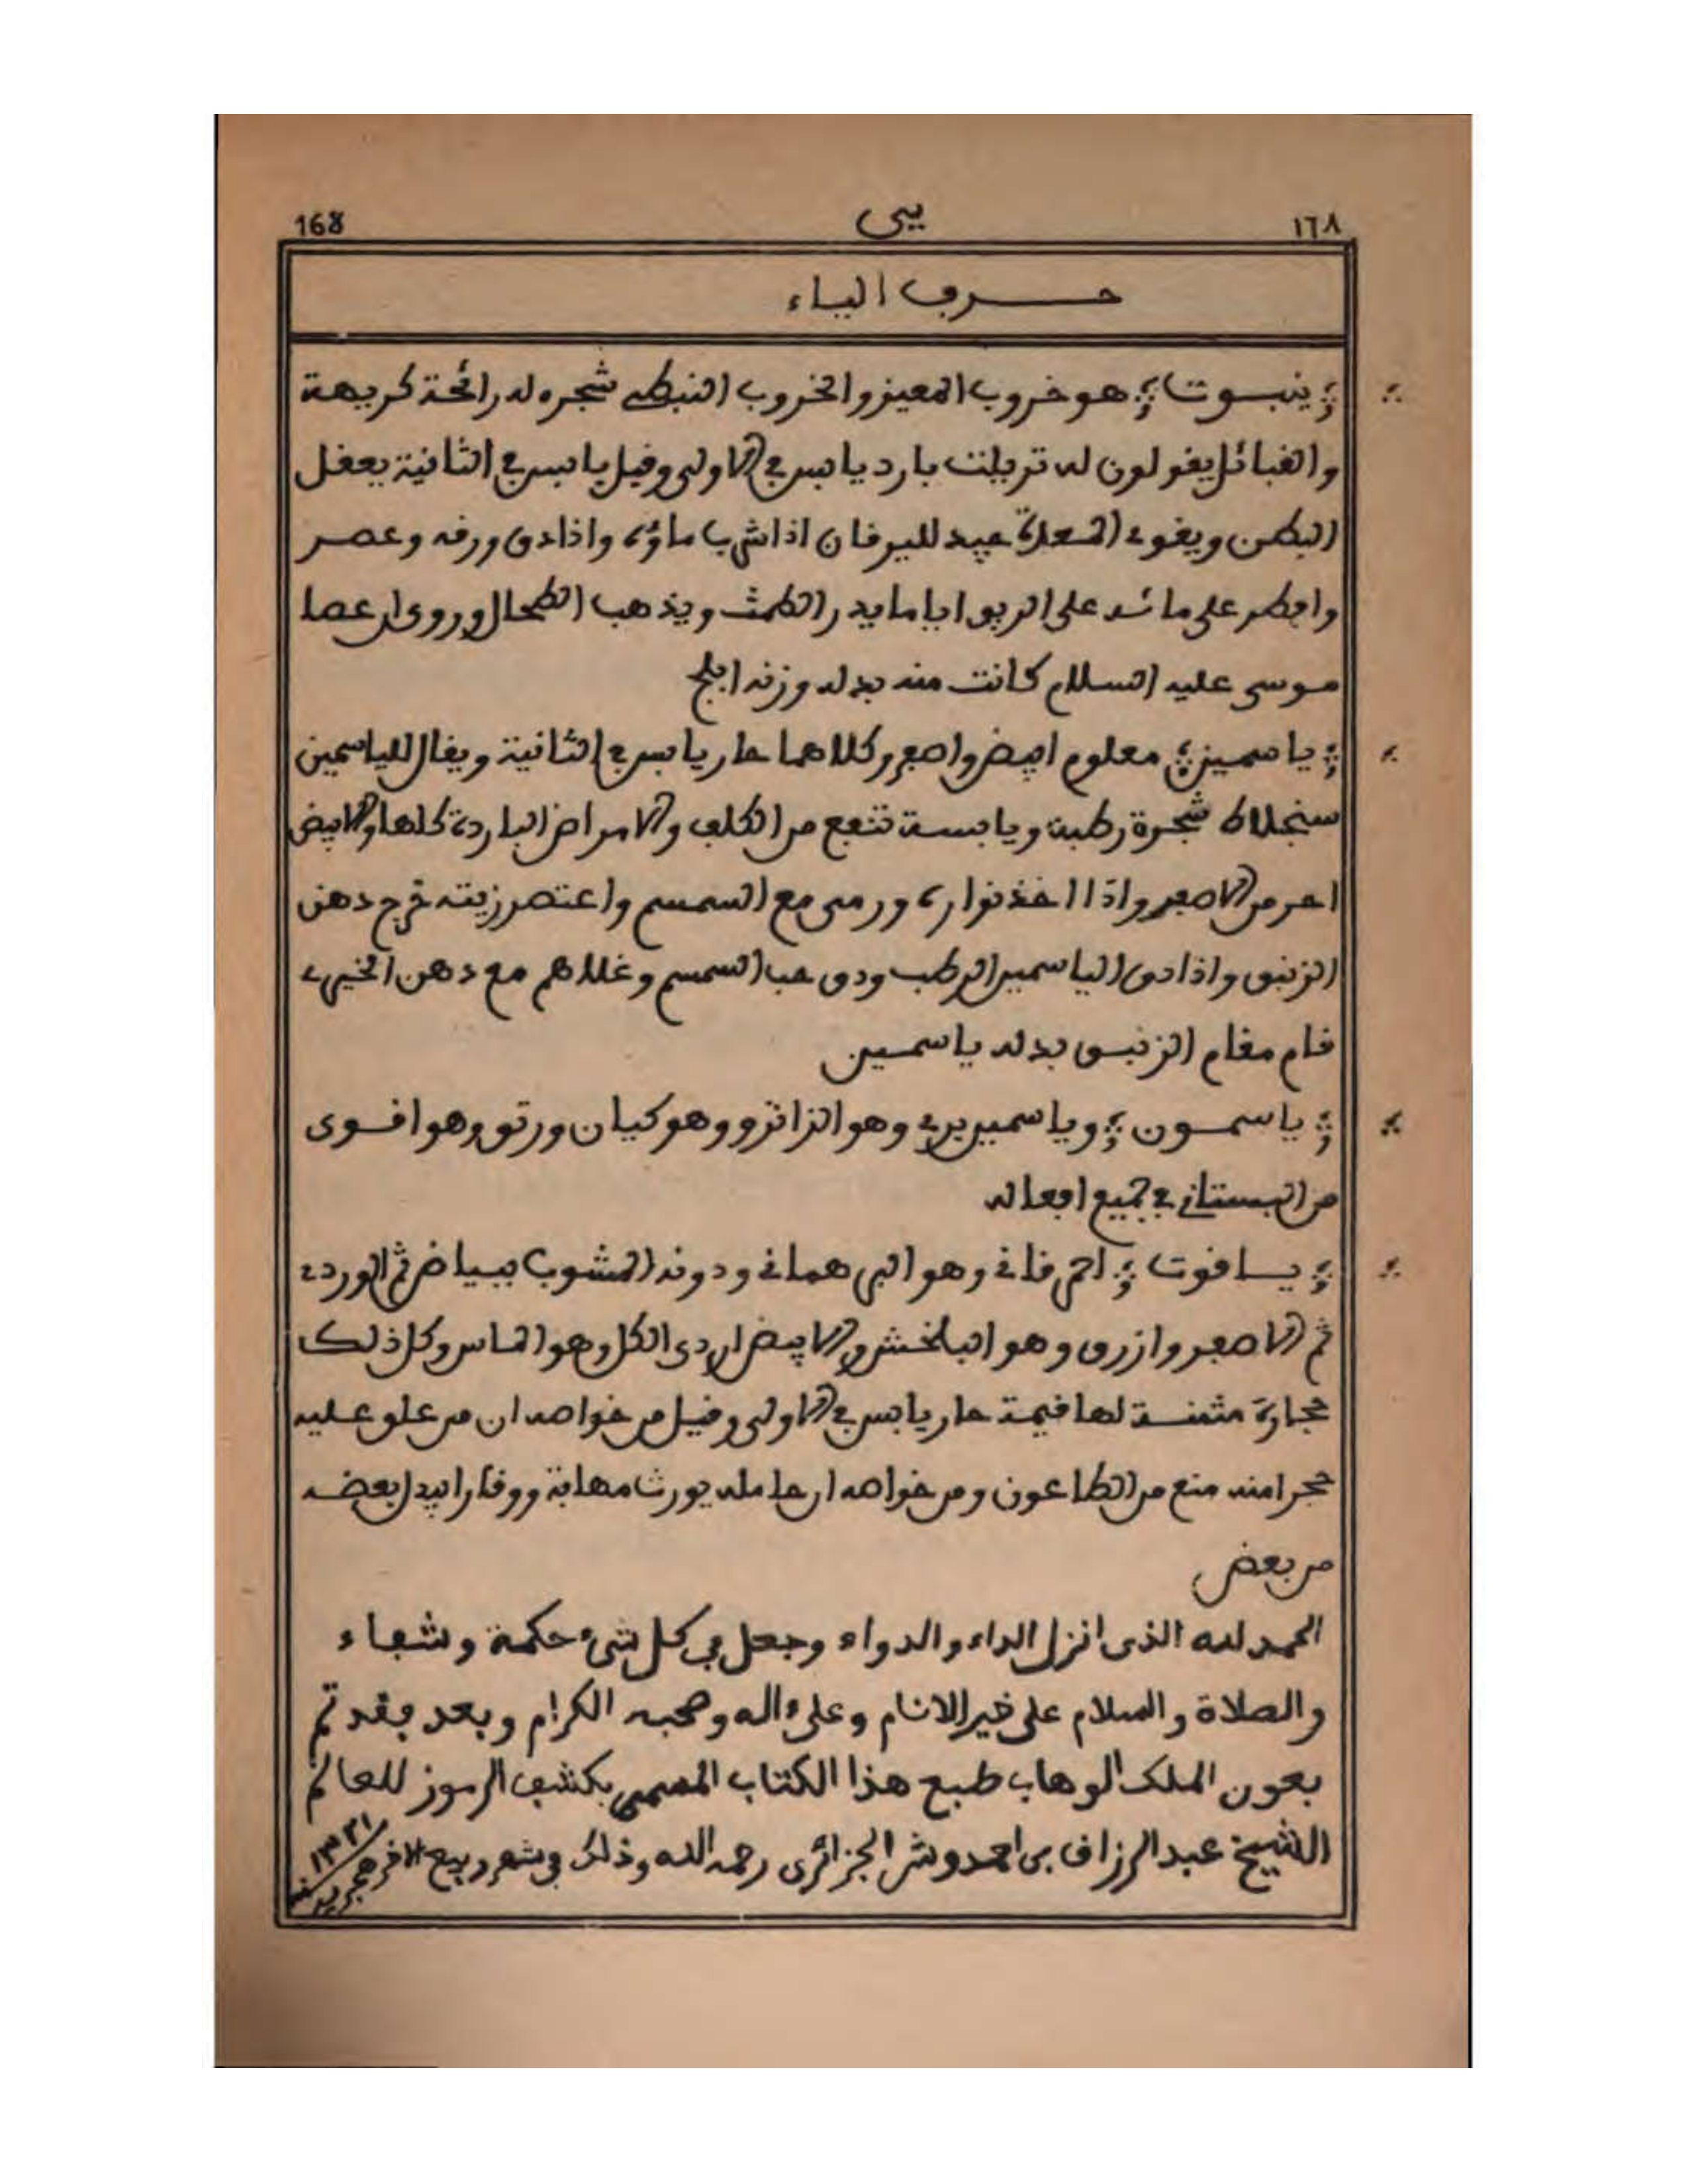 168 يبى ١٦٨
حرف الياء
ينبوت هو خروب المعيز والخروب النبطي شجره له رائحة كريهة
والقبائل يقولون له تريلت بارد يابس في الاولى وقيل يابس في الثانية يعقل
البطن ويقوي المعدة جيد لليرقان اذا شرب ماؤه واذا دق ورقه وعصر
وافطر على مائه على الريق اياما يدر الطمث ويذهب الطحال وروى ان عصا
موسى عليه السلام كانت منه بدله وزنه ابلج
ياسمين معلوم ابيض واصفر وكلاهما حار يابس في الثانية ويقال للياسمين
سنجلاط شجرة رطبة ويابسة تنفع من الكلف والامراض الباردة كلها والابيض
احر من الاصفر واذا اخذ نواره ورمى مع السمسم واعتصر زيته خرج دهن
الزنبق واذا دق الياسمين الرطب ودق حب السمسم وغلاهم مع دهن الخيري
قام مقام الزنبق بدله ياسمين
ياسمون وياسمين بري وهو الزانزو وهو كيان ورتو وهو اقوى
من البستاني في جميع افعاله
ياقوت احمر قاني وهو البهرماني ودونه المشوب ببياض ثم الوردي
ثم الاصفر وازرق وهو البلخش والابيض اردى الكل وهو الماس وكل ذلك
حجارة مثمنة لها قيمة حار يابس في الاولى وقيل من خواصه ان من علق عليه
حجرا منه منع من الطاعون ومن خواصه ان حامله يورث مهابة ووقارا يبدل بعضه
من بعض
الحمد لله الذى انزل الداء والدواء وجعل في كل شيء حكمة وشفاء
والصلاة والسلام على خير الانام وعلى ءاله وصحبه الكرام وبعد فقد تم
بعون الملك الوهاب طبع هذا الكتاب المسمى بكشف الرموز للعالم
الشيخ عبد الرزاق بن احمدوش الجزائرى رحمه الله وذلك في شهر ربيع الاخر هجرية سنة ١٣٢١